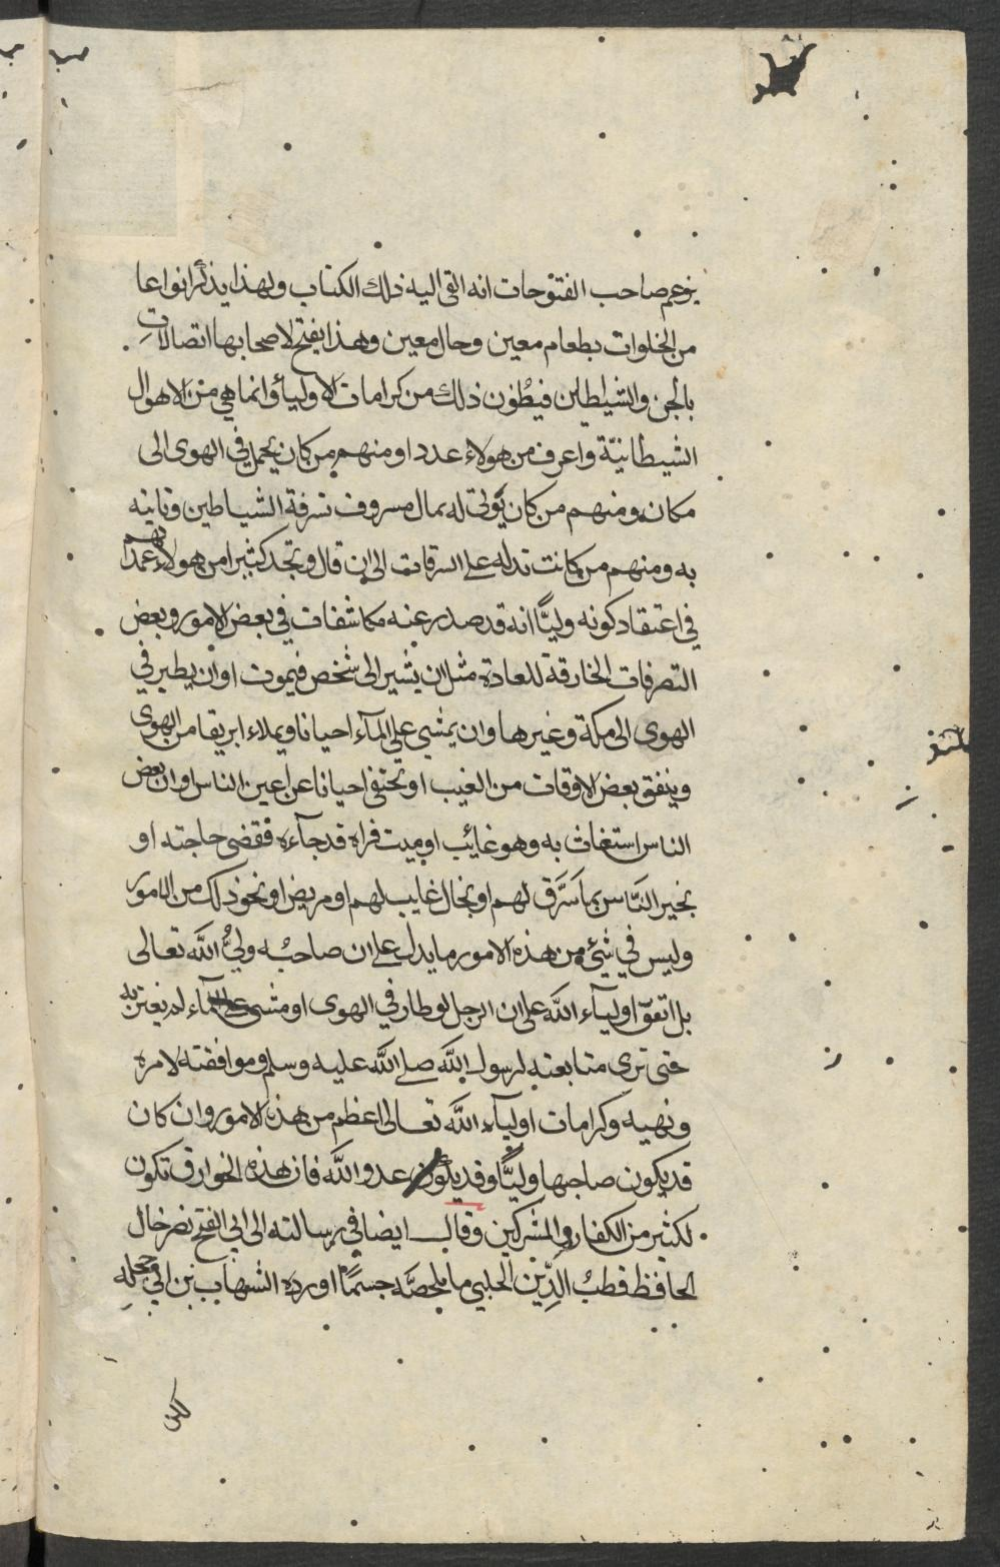 يزعم صاحب الفتوحات انه القى اليه ذلك الكتاب ولهذا يذكر انواعا
من الخلوات بطعام معين وحال معين وهذا يفتح لاصحابها اتصالات
بالجن والشياطين فيظنون ذلك من كرامات الاوليآء وانما هي من الاهوال
الشيطانيّة واعرف من هولاء عددا ومنهم من كان يحمل في الهوى الى
مكان ومنهم من كان يؤتى له بمال مسروف تسرقة الشياطين وتاتيه
به ومنهم من كانت تدله على السرقات الى ان قال وتجد كثيرا من هولاء عمدتهم
في اعتقاد كونه وليًّا انه قد صدر عنه مكاشفات في بعض الامور وبعض
التصرفات الخارقة للعادة مثل ان يشير الى شخص فيموت او ان يطير في
الهوى الى مكة وغيرها وان يمشي على المآء احيانا ويملاء ابريقا من الهوى
وينفق بعض الاوقات من الغيب او تختفي احيانا عن اعين الناس او ان بعض
الناس استغاث به وهو غائب او ميت فراه قد جآءه فقضى حاجته او
بخبر النّاس بما سُرق لهم او بحال غايب لهم او مريض او نحو ذلك من الامور
وليس في شئ من هذه الامور ما يدل على ان صاحبه وليُّ الله تعالى
بل اتفق اوليآء الله على ان الرجل لو طار في الهوى او مشى على المآء لم يغتر به
حتى ترى متابعته لرسول الله صلى الله عليه وسلم وموافقته لامره
ونهيه وكرامات اوليآء الله تعالى اعظم من هذه الامور وان كان
قد يكون صاحبها وليًّا وقد يكون عدو الله فان هذه الخوارق تكون
لكثير من الكفار والمشركين وقال ايضا في رسالته الى ابي الفتح نصر خال
الحافظ قطب الدِّين الحلبي ما ملخصّه جسمًا اورده الشهاب بن ابي حجله
لكن